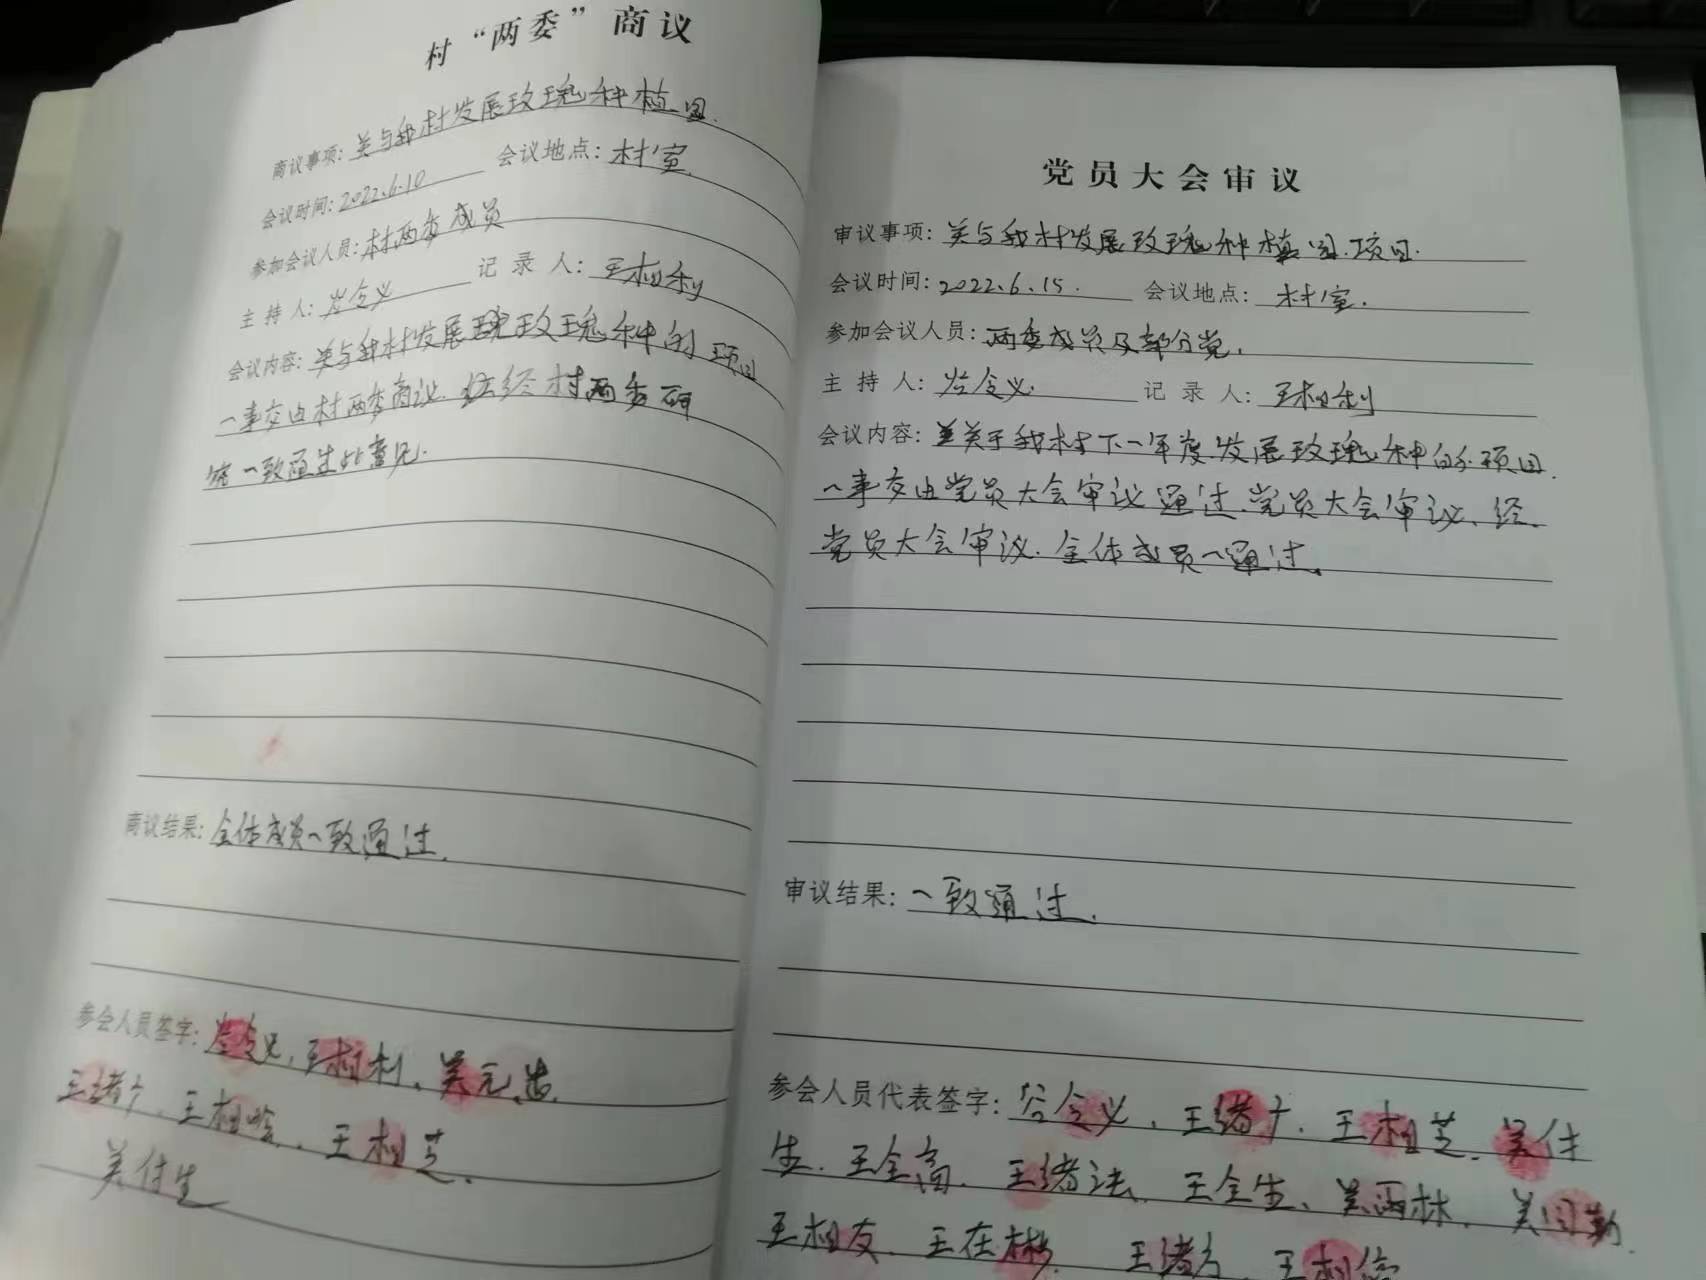 村“两委”商议
商议事项：关与我村发展玫瑰种植园.
会议时间：2022.6.10 会议地点：村室.
参加会议人员：村两委成员
主持人：岩会义 记录人：王相利
会议内容：关与我村发展玫瑰种的项目
一事交由村两委商议. 经村两委研
究一致通过此意见.
商议结果：全体成员一致通过.
参会人员签字：王相利、吴元
王绪广、王相、王相芝.
吴付生
党员大会审议
审议事项：关与我村发展玫瑰种植园.项目.
会议时间：2022.6.15. 会议地点：村室.
参加会议人员：两委成员及部分党.
主持人：会义. 记录人：王相利
会议内容：关于我村下一年度.发展玫瑰种的项目.
一事交由党员大会审议通过.党员大会审议、经.
党员大会审议.全体成员一通过。
审议结果：一致通过.
参会人员代表签字：谷会义、王绪广.王相芝.吴付
生.王全高.王绪法.王全生、吴雨林、吴同勤.
王相友、王在彬、王绪方、王相